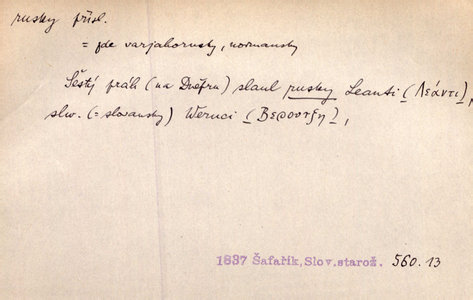 rusky přísl.
= zde varjahorusky, normansky
Šestý práh (na Dněpru) slaul rusky Leanti (Λεάντι),
slw. (= slovansky) Weruci (Βερούτζη),
1837 Šafařík, Slov.starož. 560.13